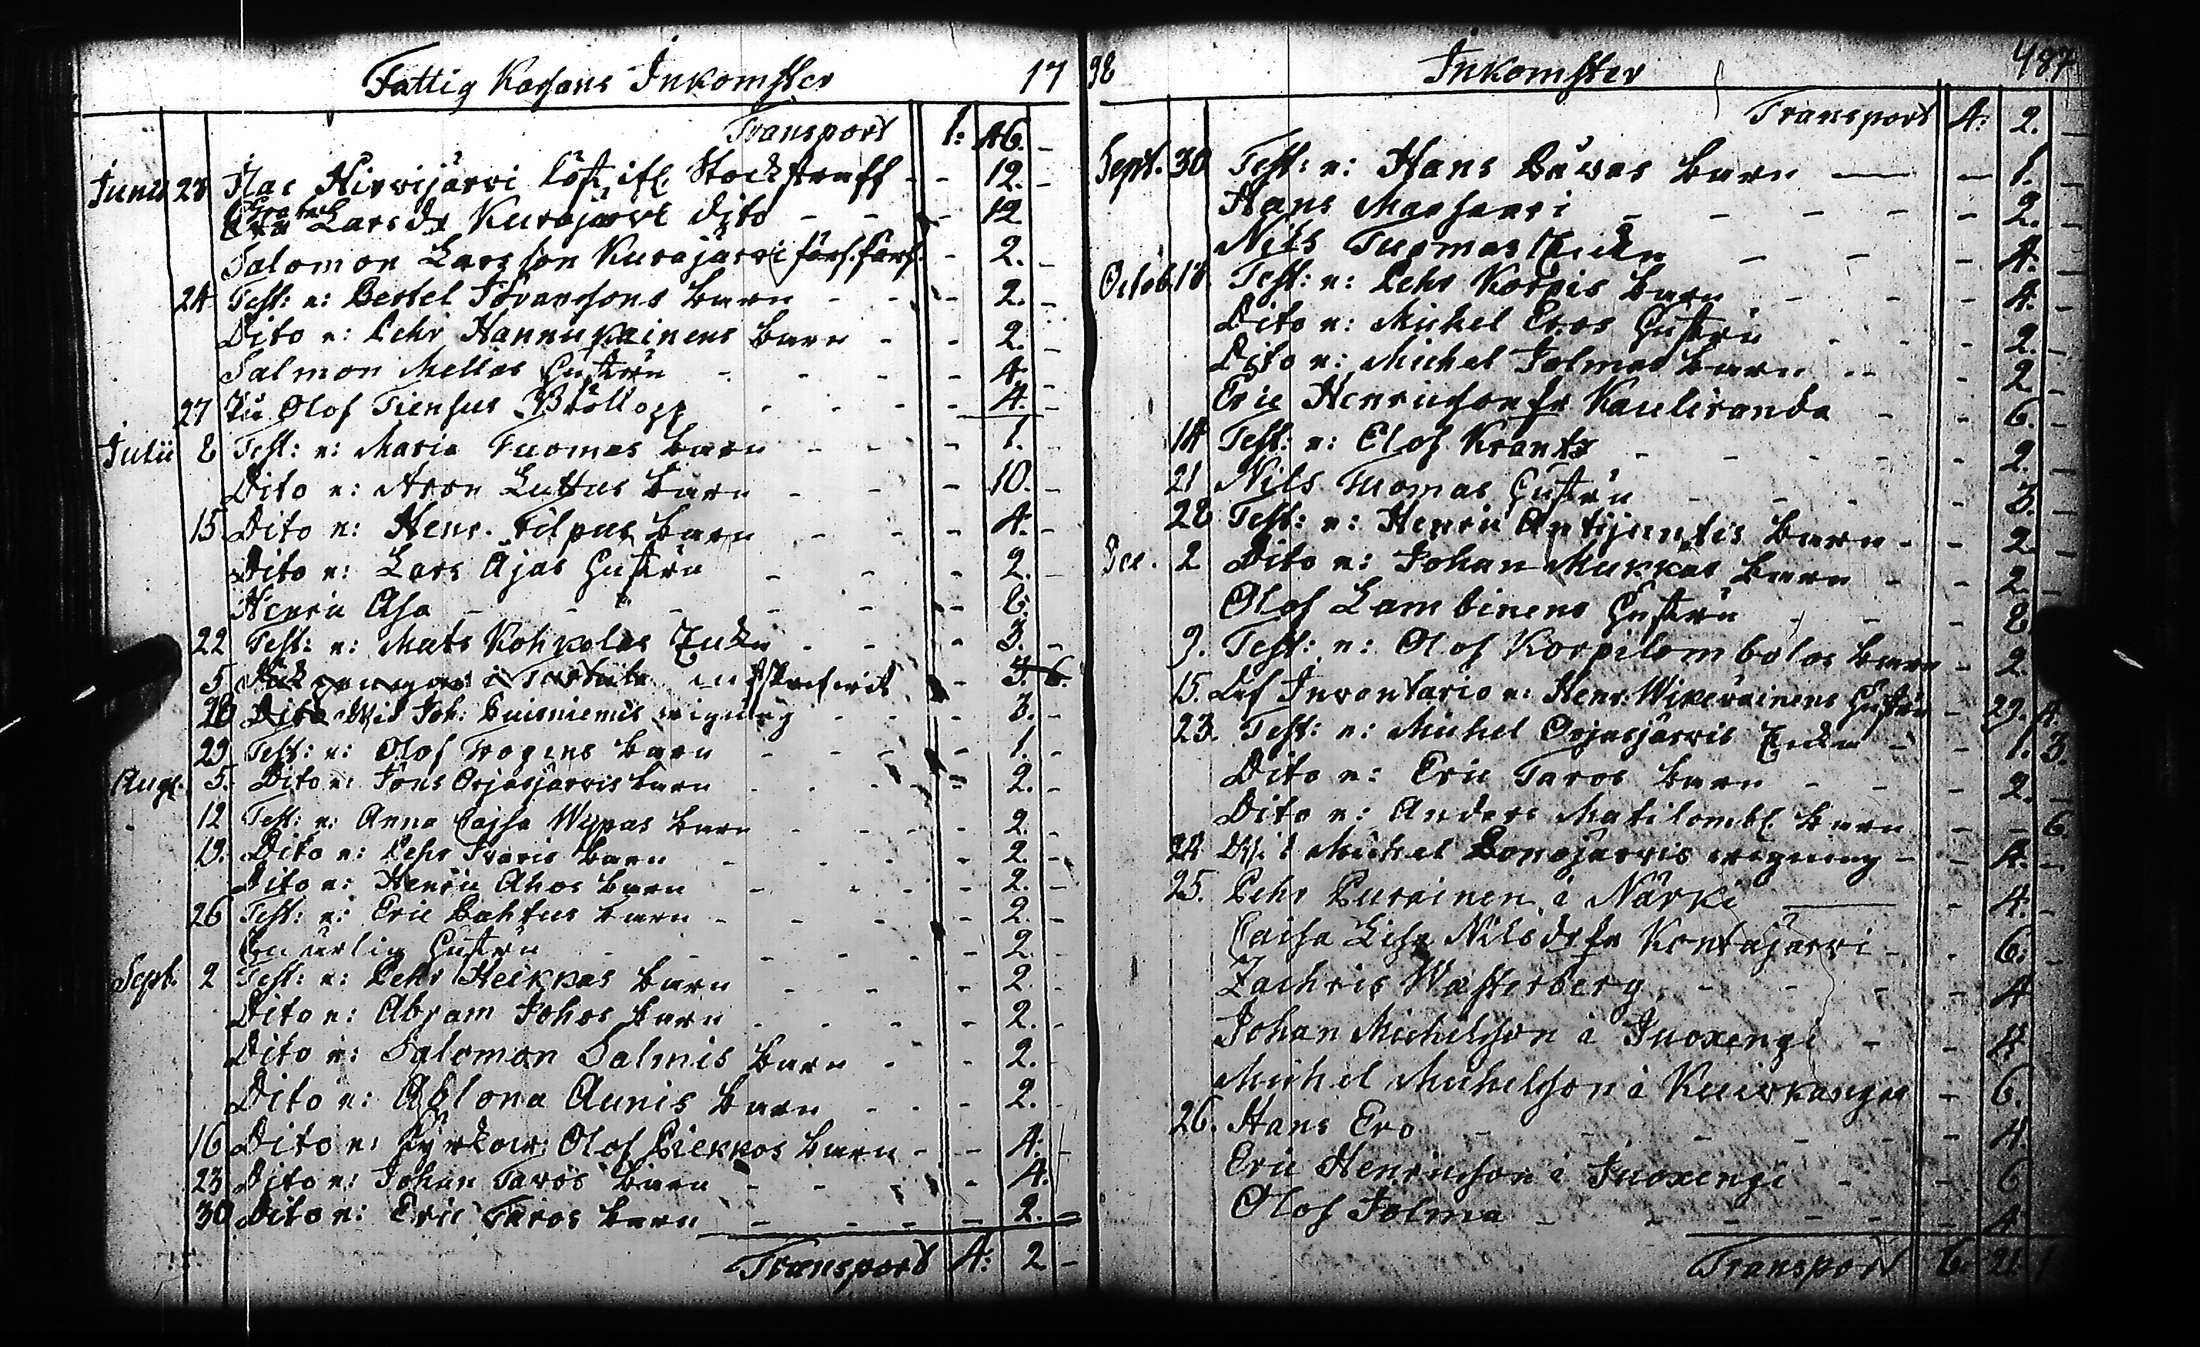 Fattig Kassans Inkomster 17
Transport 1: 46. -
Junii 23 Isac Hirvijärvi löst ifl. Stockstraff - - 12. -
Lars dr Kurajärvi dito - - 12
Salomon Larsson Kurajärvi förs. förs. - 2. -
24 Test: e: Bertel Göranssons barn - - 2. -
Dito e: Pehr Hannukainens barn - - 2. -
Salmon Mellas Hustru - - - 4. -
27 Olof Tiensus Bröllopp - - - 4. -
Julii 8 Test: e: Maria Tuomas barn - - - 1. -
Dito e: Aron Luttus barn - - 10. -
15 Dito e: Henr. Filpus barn - - - 4. -
Dito e: Lars Ajas Hustru - - - 2. -
Henric Asa - - - - 6. -
22 Test: e: Mats Kohkolas Enka - - - 3. -
5 3. 6.
28 Dito Wid Joh: Puisniemis wigning - - 3. -
29 Test: e: Olof Frogens barn - - - 1. -
Aug. 5. Dito e: Jöns Orjasjärvis barn - - 2. -
12 Test: e: Anna Cajsa Wepas barn - - - 2. -
19. Dito e: Pehr Ivaris barn - - - 2. -
Dito e: Henric Ahos barn - - - 2. -
26 Test: e: Eric Bahtus barn - - - 2. -
En ärlig Hustru - - - - 2. -
Sept. 2 Test: e: Pehr Heikkas barn - - - 2. -
Dito e: Abram Johos barn - - - 2. -
Dito e: Salomon Salmis barn - - 2. -
Dito e: Ablona Aunis barn - - - 2. -
16 Dito e: Kyrkow. Olof Piekkos barn - - 4. -
23 Dito e: Johan Taros barn - - - 4. -
30 Dito e: Eric Taros barn - - - - 2. -
Transport 4: 2 -
98 Inkomster 487
Transport 4: 2. -
Sept. 30 Test: e: Hans Påwas barn - - 1. -
Hans Marsanri - - - - 2. -
Nils Tuomas Enka - - - 4. -
Octob. 18. Test: e: Pehr Korpis barn - - - 4. -
Dito e: Michel Eros Hustru - - - 2. -
Dito e: Michel Jolmas barn - - - 2 -
Eric Henricson fr Kauliranda - - 6. -
14 Test: e: Olof Krantz - - - - 2. -
21 Nils Tuomas Hustru - - - - 3. -
28 Test: e: Henric Antijuntis barn - - 2. -
Dec. 2 Dito e: Johan Mukkas barn - - 2. -
Olof Lambinens Hustru - - - 8.
9. Test: e: Olof Korpilombolos barn - 2.
15. Inventario e: Henr. Wikeväinens Hustru - 29. 4.
23. Test: e: Michel Orjasjärvis Enka - - 1. 3.
Dito e: Eric Taros barn - - - 2. -
Dito e: Anders Matilombl. barn - - 6.
24 Wid Michel Bonojärvis wigning - - 4. -
25. Pehr Purainen i Närki - 4. -
Caisa Lisa Nilsdr fr Kontajärvi - - 6. -
Zachris Wästerberg - - - - 4
Johan Michelsson i Juoxengi - - 4
Michel Michelsson i Kuivkangas - 6.
26. Hans Ero - - - - - 4
Eric Henricsson i Juoxengi - - 6
Olof Jolma - - - - - 4
Transport 6. 21. 1